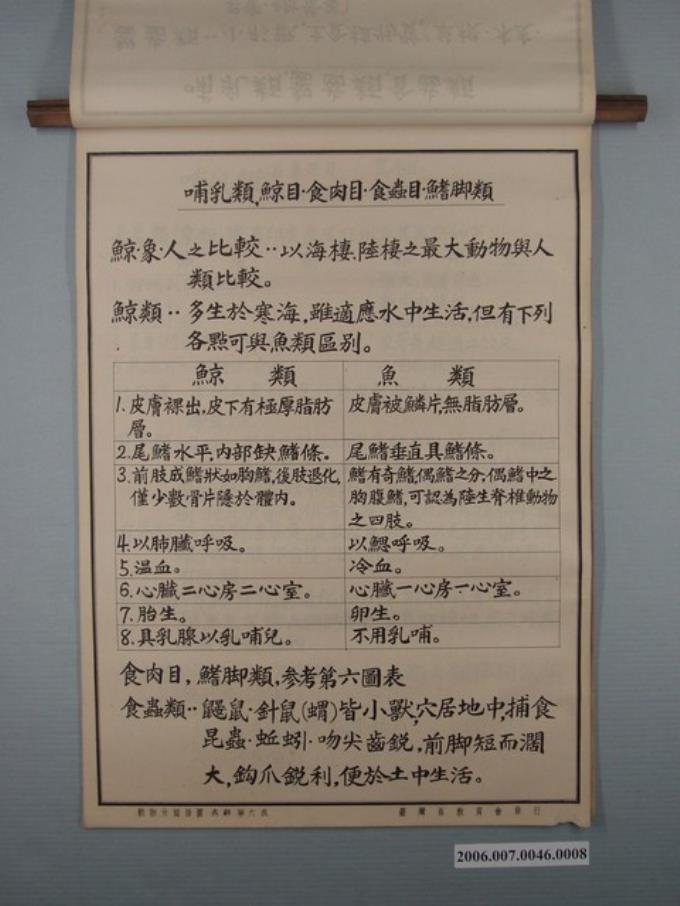 哺乳類,鯨目·食肉目·食蟲目·鰭脚類
鯨·象·人之比較··以海棲、陸棲之最大動物與人
類比較。
鯨類··多生於寒海,雖適應水中生活,但有下列
各點可與魚類區别。
鯨 類 魚 類
1.皮膚裸出,皮下有極厚脂肪層。 皮膚被鱗片,無脂肪層。
2.尾鰭水平,内部缺鰭條。 尾鰭垂直具鰭條。
3.前肢成鰭狀如胸鰭,後肢退化,僅少數骨片隱於體内。 鰭有奇鰭,偶鰭之分,偶鰭中之胸腹鰭,可認為陸生脊椎動物之四肢。
4.以肺臟呼吸。 以鰓呼吸。
5.温血。 冷血。
6.心臟二心房二心室。 心臟一心房一心室。
7.胎生。 卵生。
8.具乳腺以乳哺兒。 不用乳哺。
食肉目,鰭脚類,参考第六圖表
食蟲類··鼴鼠·針鼠(蝟)皆小獸,穴居地中,捕食
昆蟲·蚯蚓·吻尖齒鋭,前脚短而濶
大,鈎爪鋭利,便於土中生活。
臺灣省教育會發行
2006.007.0046.0008